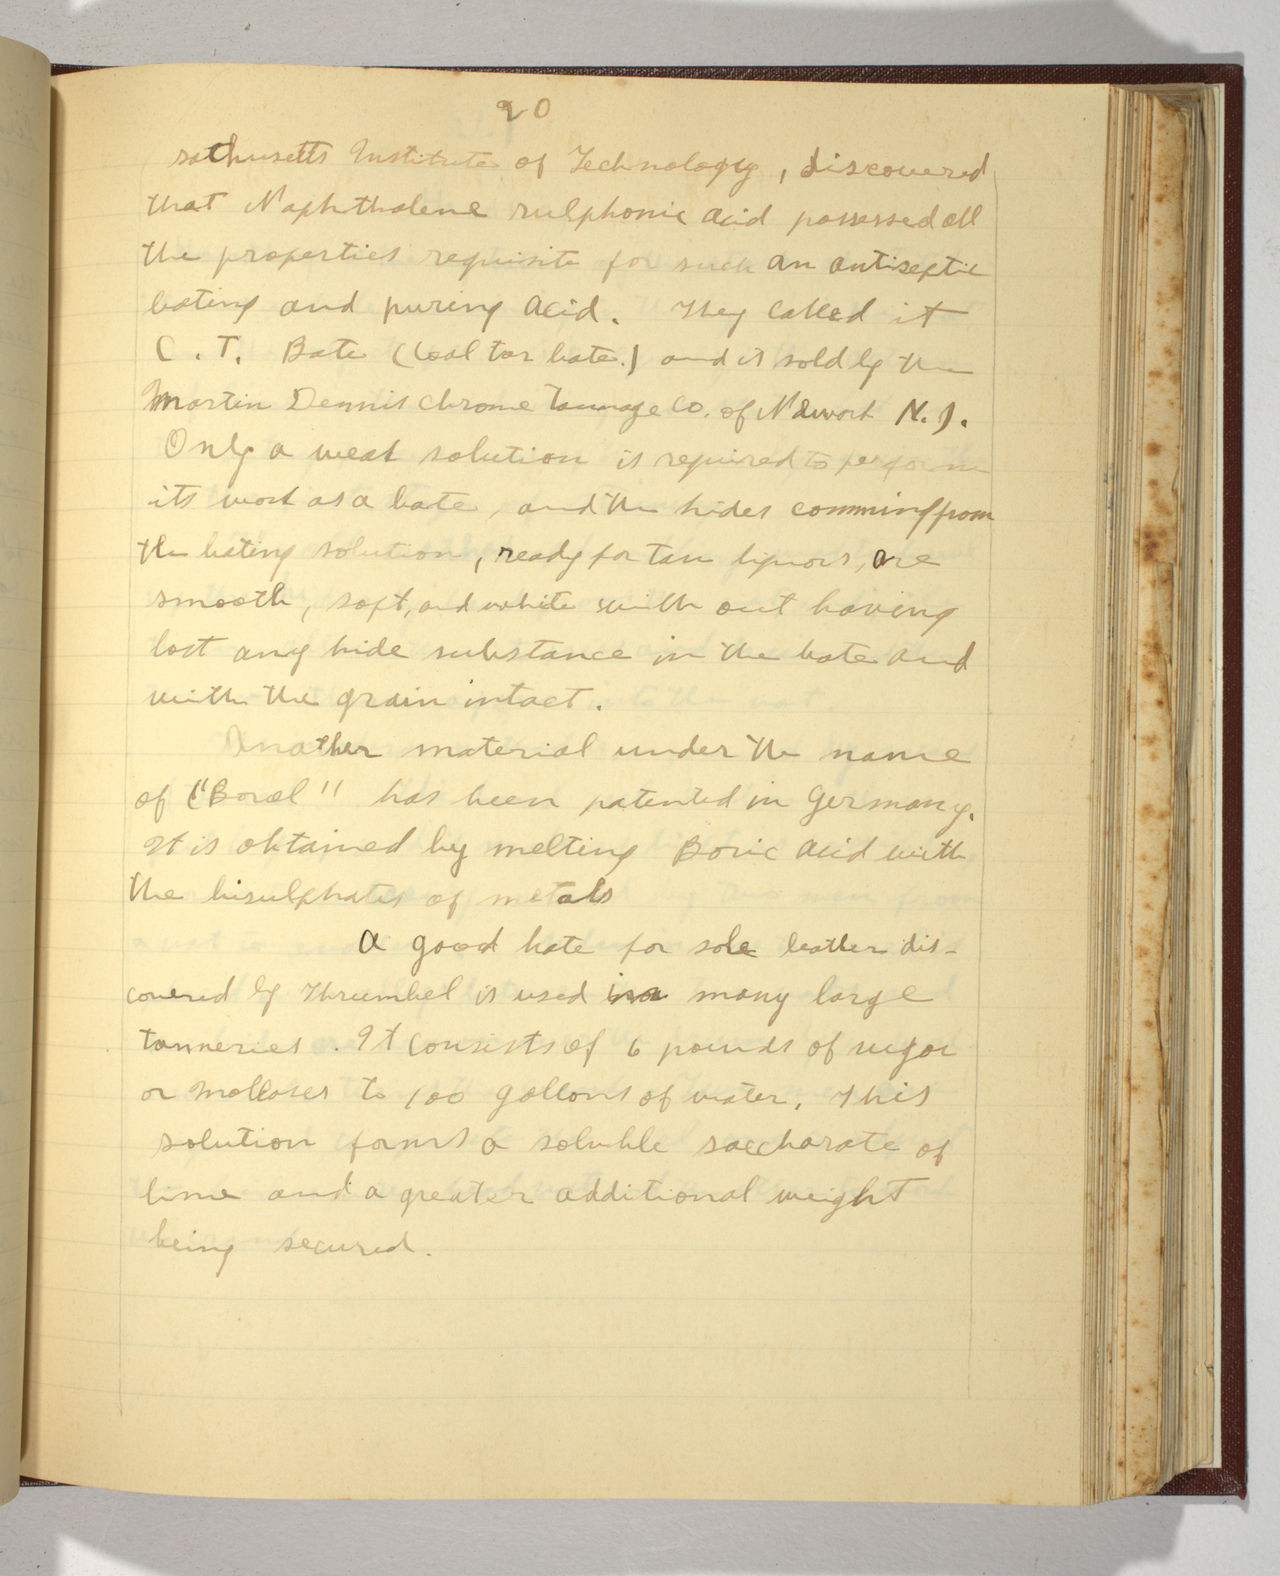 20
sachusetts Institute of Technology, discovered
that Naphthalene sulphonic acid possessed all
the properties requisite for such an antiseptic
bating and puring acid. They called it
C. T. Bate (Coal tar bate.) and is sold by the
Martin Dennis Chrome Tannage Co. of Newark N. J.
Only a weak solution is required to perform
its work as a bate, and the hides comming from
the bating solution, ready for tan liquors, are
smooth, soft, and white with out having
lost any hide substance in the bate and
with the grain intact.
Another material under the name
of "Boral" has been patented in Germany.
It is obtained by melting Boric acid with
the bisulphates of metals
A good bate for sole leather dis-
covered by Thrumbel is used in many large
tanneries. It consists of 6 pounds of
or Molasses to 100 gallons of water. This
solution forms a soluble saccharate of
lime and a greater additional weight
being secured.